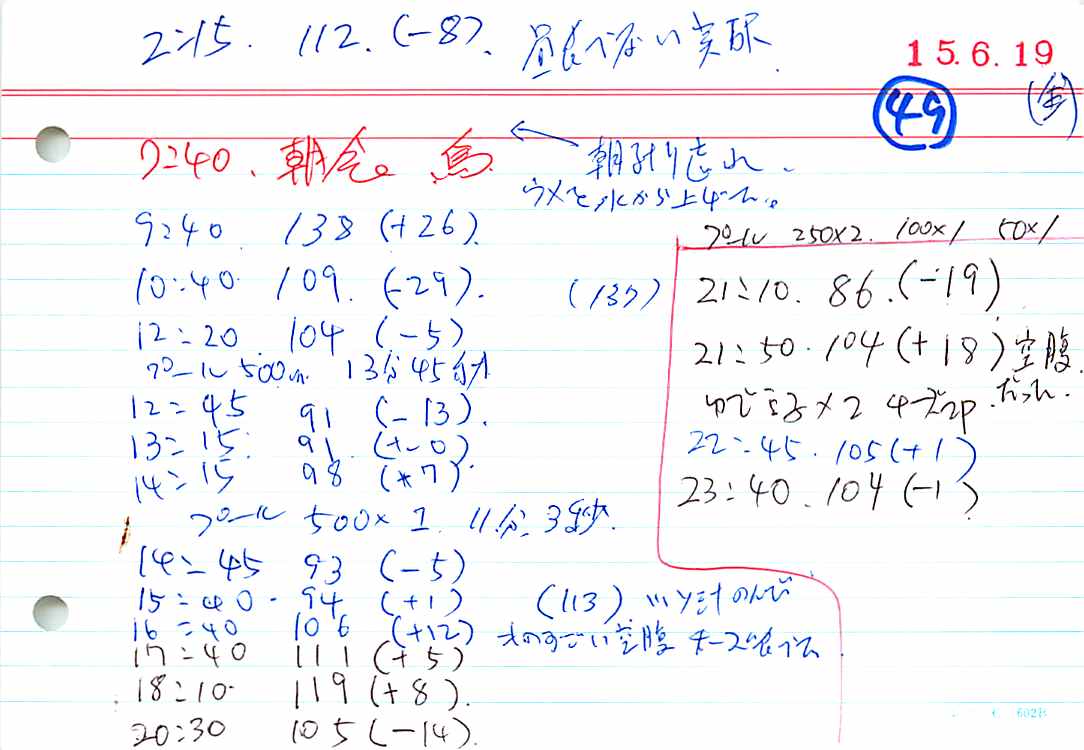 2:15. 112. (-8). 昼食べない実験.
15.6.19
49
(金)
7:40. 朝食。鳥
朝計り忘れ.
9:40. 138 (+26).
10:40. 109. (-29).
12:20 104 (-5)
プール 500m. 13分45秒
12:45 91 (-13).
13:15. 91 (+-0)
14:15 98 (+7).
プール 500×1. 11分. 3秒.
14:45 93 (-5)
15:40. 94 (+1)
(113)
のんで
16:40 106 (+12)
ものすごい空腹 チーズ食べる.
17:40 111 (+5)
18:10. 119 (+8).
20:30 105 (-14).
プール 250×2. 100×1 50×1
(137)
21:10. 86. (-19)
21:50. 104 (+18) 空腹.
だった.
ゆで玉子×2 チーズ2p
22:45. 105 (+1)
23:40. 104 (-1)
602B